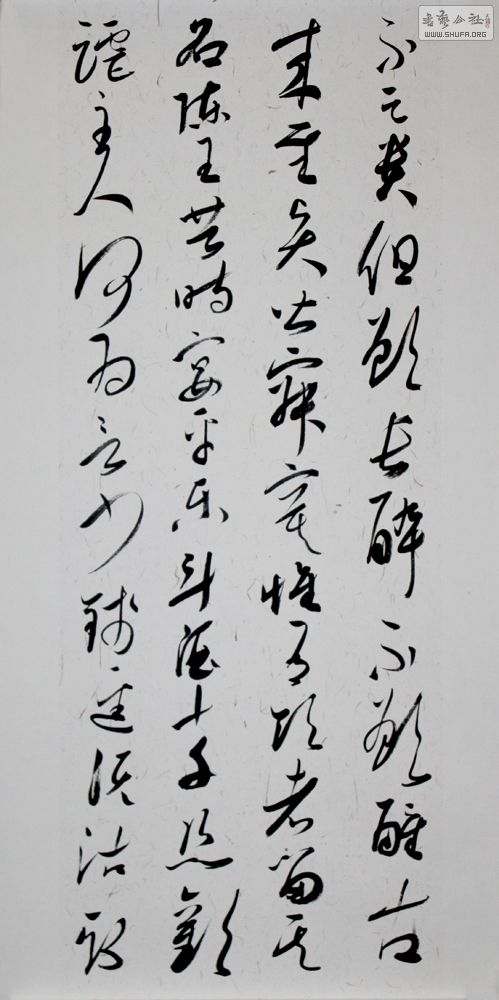 書藝公社
WWW.SHUFA.ORG
不足貴但願長醉不願醒古
來聖賢皆寂寞惟有飲者留其
名陳王昔時宴平樂斗酒十千恣歡
謔主人何為言少錢徑須沽取